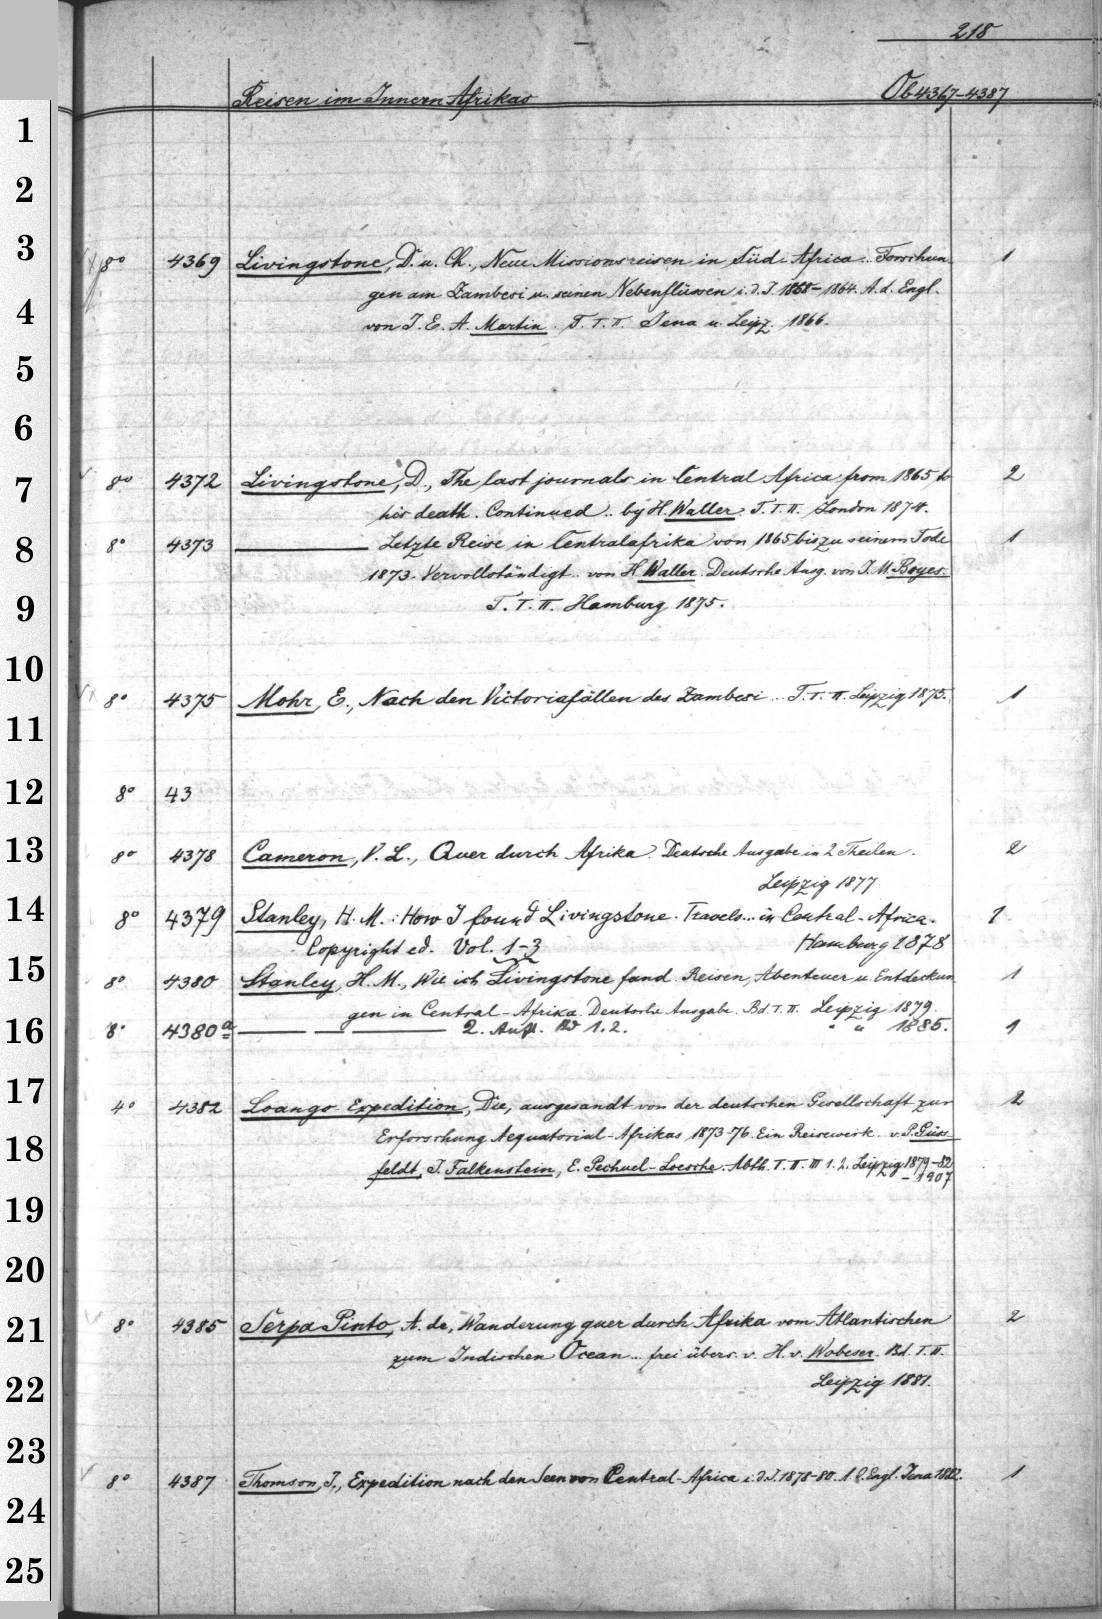 218
Reisen im Innern Afrikas Ob 4367-4387
1
2
3
8° 4369 Livingstone, D. u. Ch., Neue Missionsreisen in Süd-Africa.. Forschun
4
gen am Zambesi u. seinen Nebenflüssen i. d. J. 1858-1864. A. d. Engl.
von J. E. A. Martin. T. I. II. Jena u. Leipz. 1866. 1
5
6
7
8° 4372 Livingstone, D., The last journals in Central Africa from 1865 to 2
his death. Continued .. by H. Waller. T. I. II. London 1874.
8
8° 4373 ——— Letzte Reise in Centralafrika von 1865 bis zu seinem Tode 1
1873. Vervollständigt.. von H. Waller. Deutsche Ausg. von J. M. Boyes.
9
T. I. II. Hamburg 1875.
10
8° 4375 Mohr, E., Nach den Victoriafällen des Zambesi .. T. I. II. Leipzig 1875. 1
11
12
8° 43
13
8° 4378 Cameron, V. L., Quer durch Afrika. Deutsche Ausgabe in 2 Theilen. 2
Leipzig 1877
14
8° 4379 Stanley, H. M.: How I found Livingstone. Travels... in Central-Africa. 1
Copyright ed. Vol. 1-3 Hamburg 1878
15
8° 4380 Stanley, H. M., Wie ich Livingstone fand. Reisen, Abenteuer u. Entdeckun 1
gen in Central-Afrika. Deutsche Ausgabe. Bd. I. II. Leipzig 1879.
16
8° 4380a ——— — ——— 2. Aufl. Bd 1.2. " " 1885. 1
17
4° 4382 Loango Expedition, Die, ausgesandt von der deutschen Gesellschaft zur 2
Erforschung Aequatorial-Afrikas 1873-76. Ein Reisewerk. v. P. Güss
18
feldt, J. Falkenstein, E. Pechuel-Loesche. Abth. I. II. III 1. 2. Leipzig 1879-82
-1907
19
20
21
8° 4385 Serpa Pinto, A. de, Wanderung quer durch Afrika vom Atlantischen 2
zum Indischen Ocean.. frei übers. v. H. v. Wobeser. Bd. I. II.
22
Leipzig 1881.
23
8° 4387 Thomson, J., Expedition nach den Seen von Central-Africa i. d. J. 1878-80. A. d. Engl. Jena 1882. 1
24
25